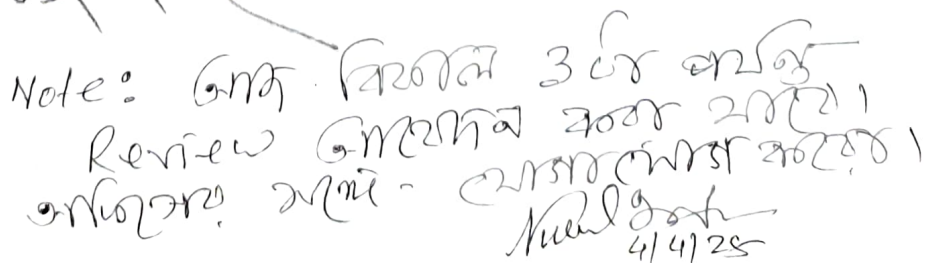 Note: আজ বিকাল ৩টা পর্যন্ত
Review আবেদন করা যাবে।
অফিসের সাথে যোগাযোগ করবে।
4/4/25